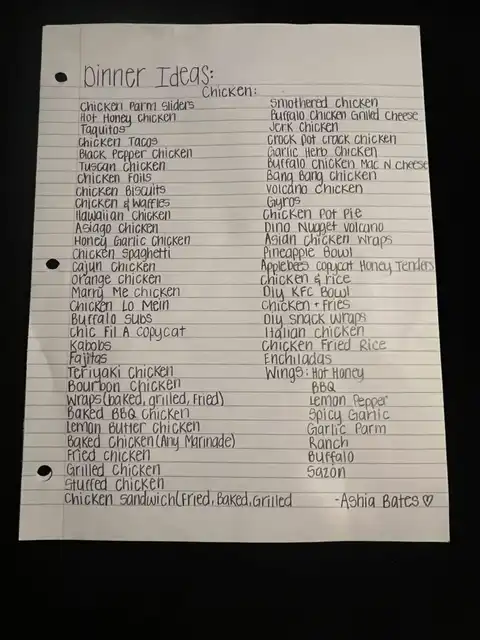 Dinner Ideas:
Chicken:
Chicken Parm Sliders
Hot Honey Chicken
Taquitos
Chicken Tacos
Black Pepper Chicken
Tuscan Chicken
Chicken Foils
Chicken Biscuits
Chicken & Waffles
Hawaiian Chicken
Asiago Chicken
Honey Garlic Chicken
Chicken Spaghetti
Cajun Chicken
Orange Chicken
Marry Me Chicken
Chicken Lo Mein
Buffalo Subs
Chic Fil A copycat
Kabobs
Fajitas
Teriyaki Chicken
Bourbon Chicken
Wraps (baked, grilled, Fried)
Baked BBQ Chicken
Lemon Butter Chicken
Baked Chicken (Any Marinade)
Fried Chicken
Grilled Chicken
Stuffed Chicken
Chicken Sandwich (Fried, Baked, Grilled
Smothered Chicken
Buffalo Chicken Grilled Cheese
Jerk Chicken
Crock Pot crack chicken
Garlic Herb Chicken
Buffalo Chicken Mac N Cheese
Bang Bang Chicken
Volcano Chicken
Gyros
Chicken Pot Pie
Dino Nugget Volcano
Asian Chicken Wraps
Pineapple Bowl
Applebees copycat Honey Tenders
Chicken & Rice
Diy KFC Bowl
Chicken + Fries
Diy Snack Wraps
Italian Chicken
Chicken Fried Rice
Enchiladas
Wings: Hot Honey
BBQ
Lemon Pepper
Spicy Garlic
Garlic Parm
Ranch
Buffalo
Sazon
-Ashia Bates ♡